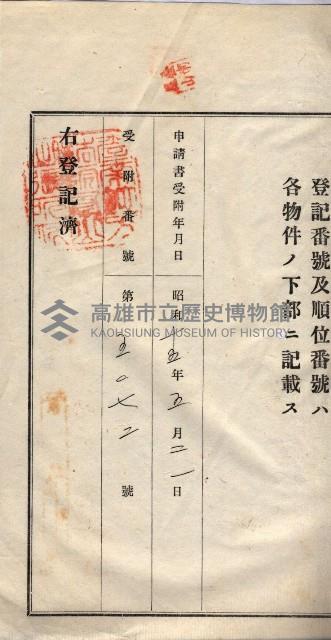 登記番號及順位番號ハ
各物件ノ下部ニ記載ス
申請書受附年月日
昭和十五年五月二一日
受附番號
第五〇七二號
右登記濟
高雄市立歷史博物館
KAOHSIUNG MUSEUM OF HISTORY